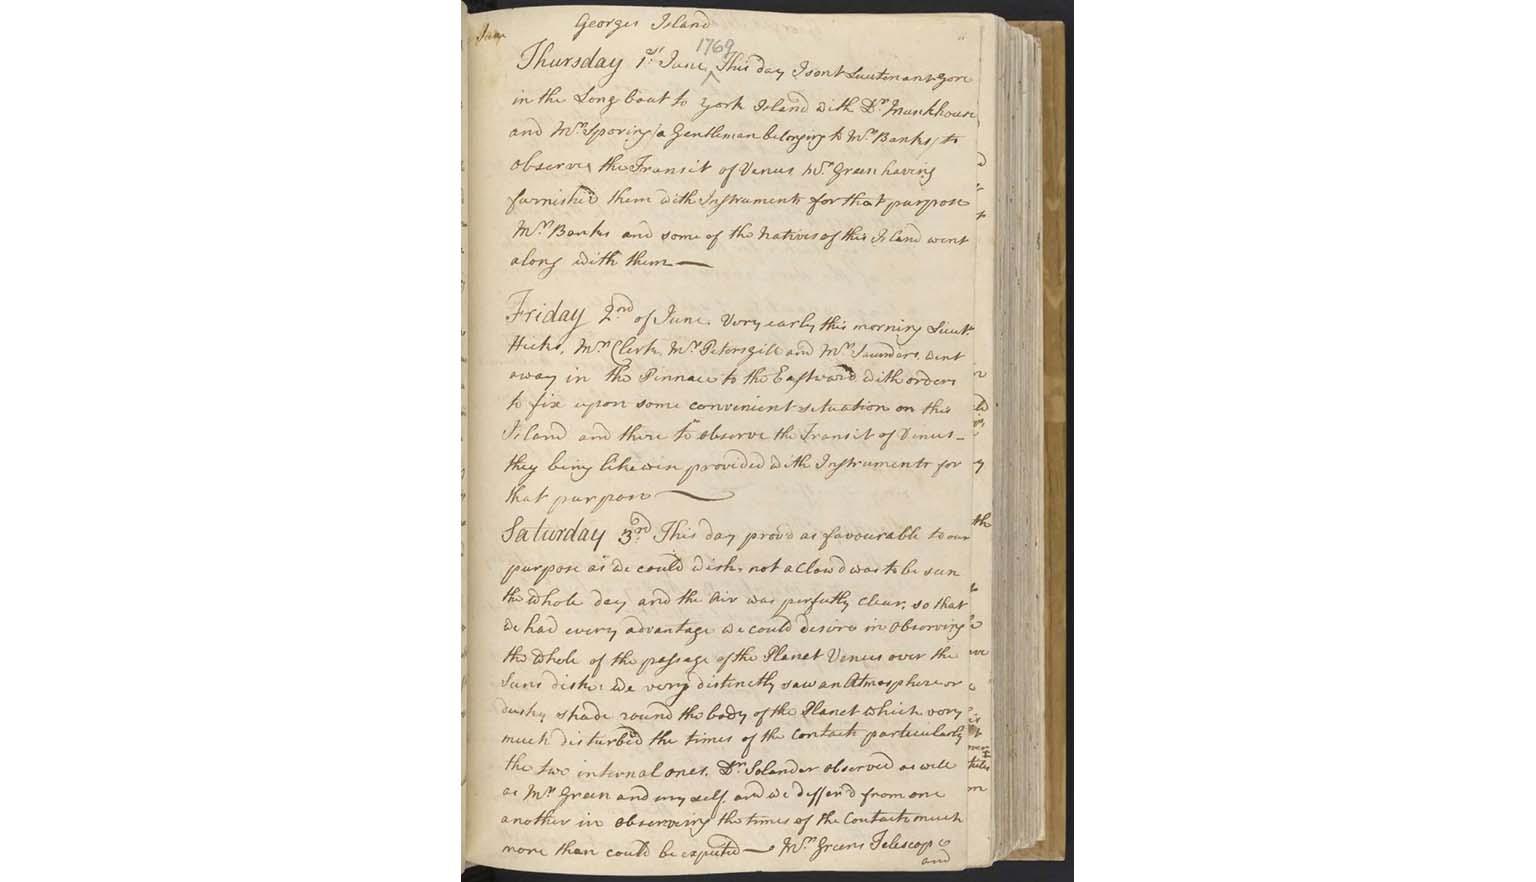 Georges Island
1769
Thursday 1st June, This day I sent Lieutenant Gore
in the Long boat to York Island with Dr. Munkhouse
and Mr. Sporing (a Gentleman belonging to Mr. Banks) to
observe the Transit of Venus Mr. Green having
furnished them with Instruments for that purpose
Mr. Banks and some of the Natives of this Island went
along with them —
Friday 2nd of June. Very early this morning Lieut.
Hicks, Mr. Clerk, Mr. Petersgill and Mr. Saunders, went
away in the Pinnace to the Eastward with orders
to fix upon some convenient situation on this
Island and there to observe the Transit of Venus -
they being likewise provided with Instruments for
that purpose —
Saturday 3rd This day prov'd as favourable to our
purpose as we could wish, not a Clowd was to be seen
the whole day and the Air was perfectly clear, so that
we had every advantage we could desire in Observing
the whole of the passage of the Planet Venus over the
Suns disk: we very distinctly saw an Atmosphere or
dusky shade round the body of the Planet which very
much disturbed the times of the Contacts particularly
the two internal ones. Dr. Solander observed as well
as Mr. Green and my self, and we differ'd from one
another in observing the times of the Contacts much
more than could be expected — Mr. Greens Telescope
and